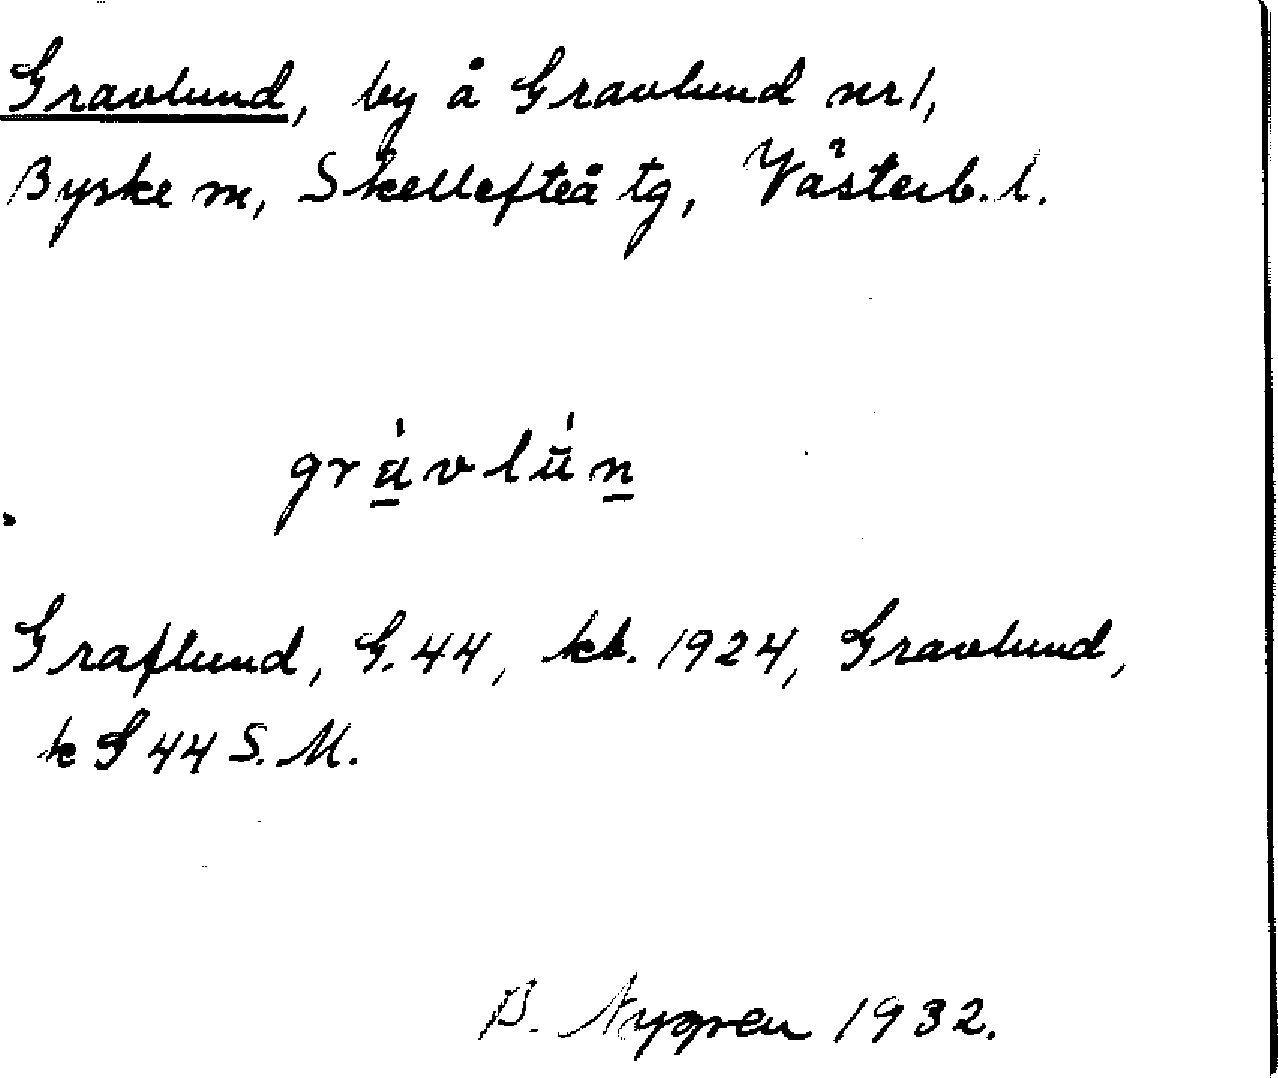 Gravlund, by å Gravlund nr 1,
Byske m, Skellefteå tg, Västerb. l.
grávlún
Graflund, G. 44, kb. 1924, Gravlund,
k G 44 S. M.
B. Nygren 1932.